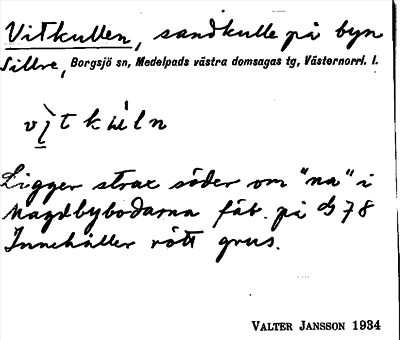 Vitkullen, sandkulle på byn
Sillre, Borgsjö sn, Medelpads västra domsagas tg, Västernorrl. l.
Ligger strax söder om "na" i
Magdbybodarna fäb. på 78
Innehåller rött grus.
VALTER JANSSON 1934